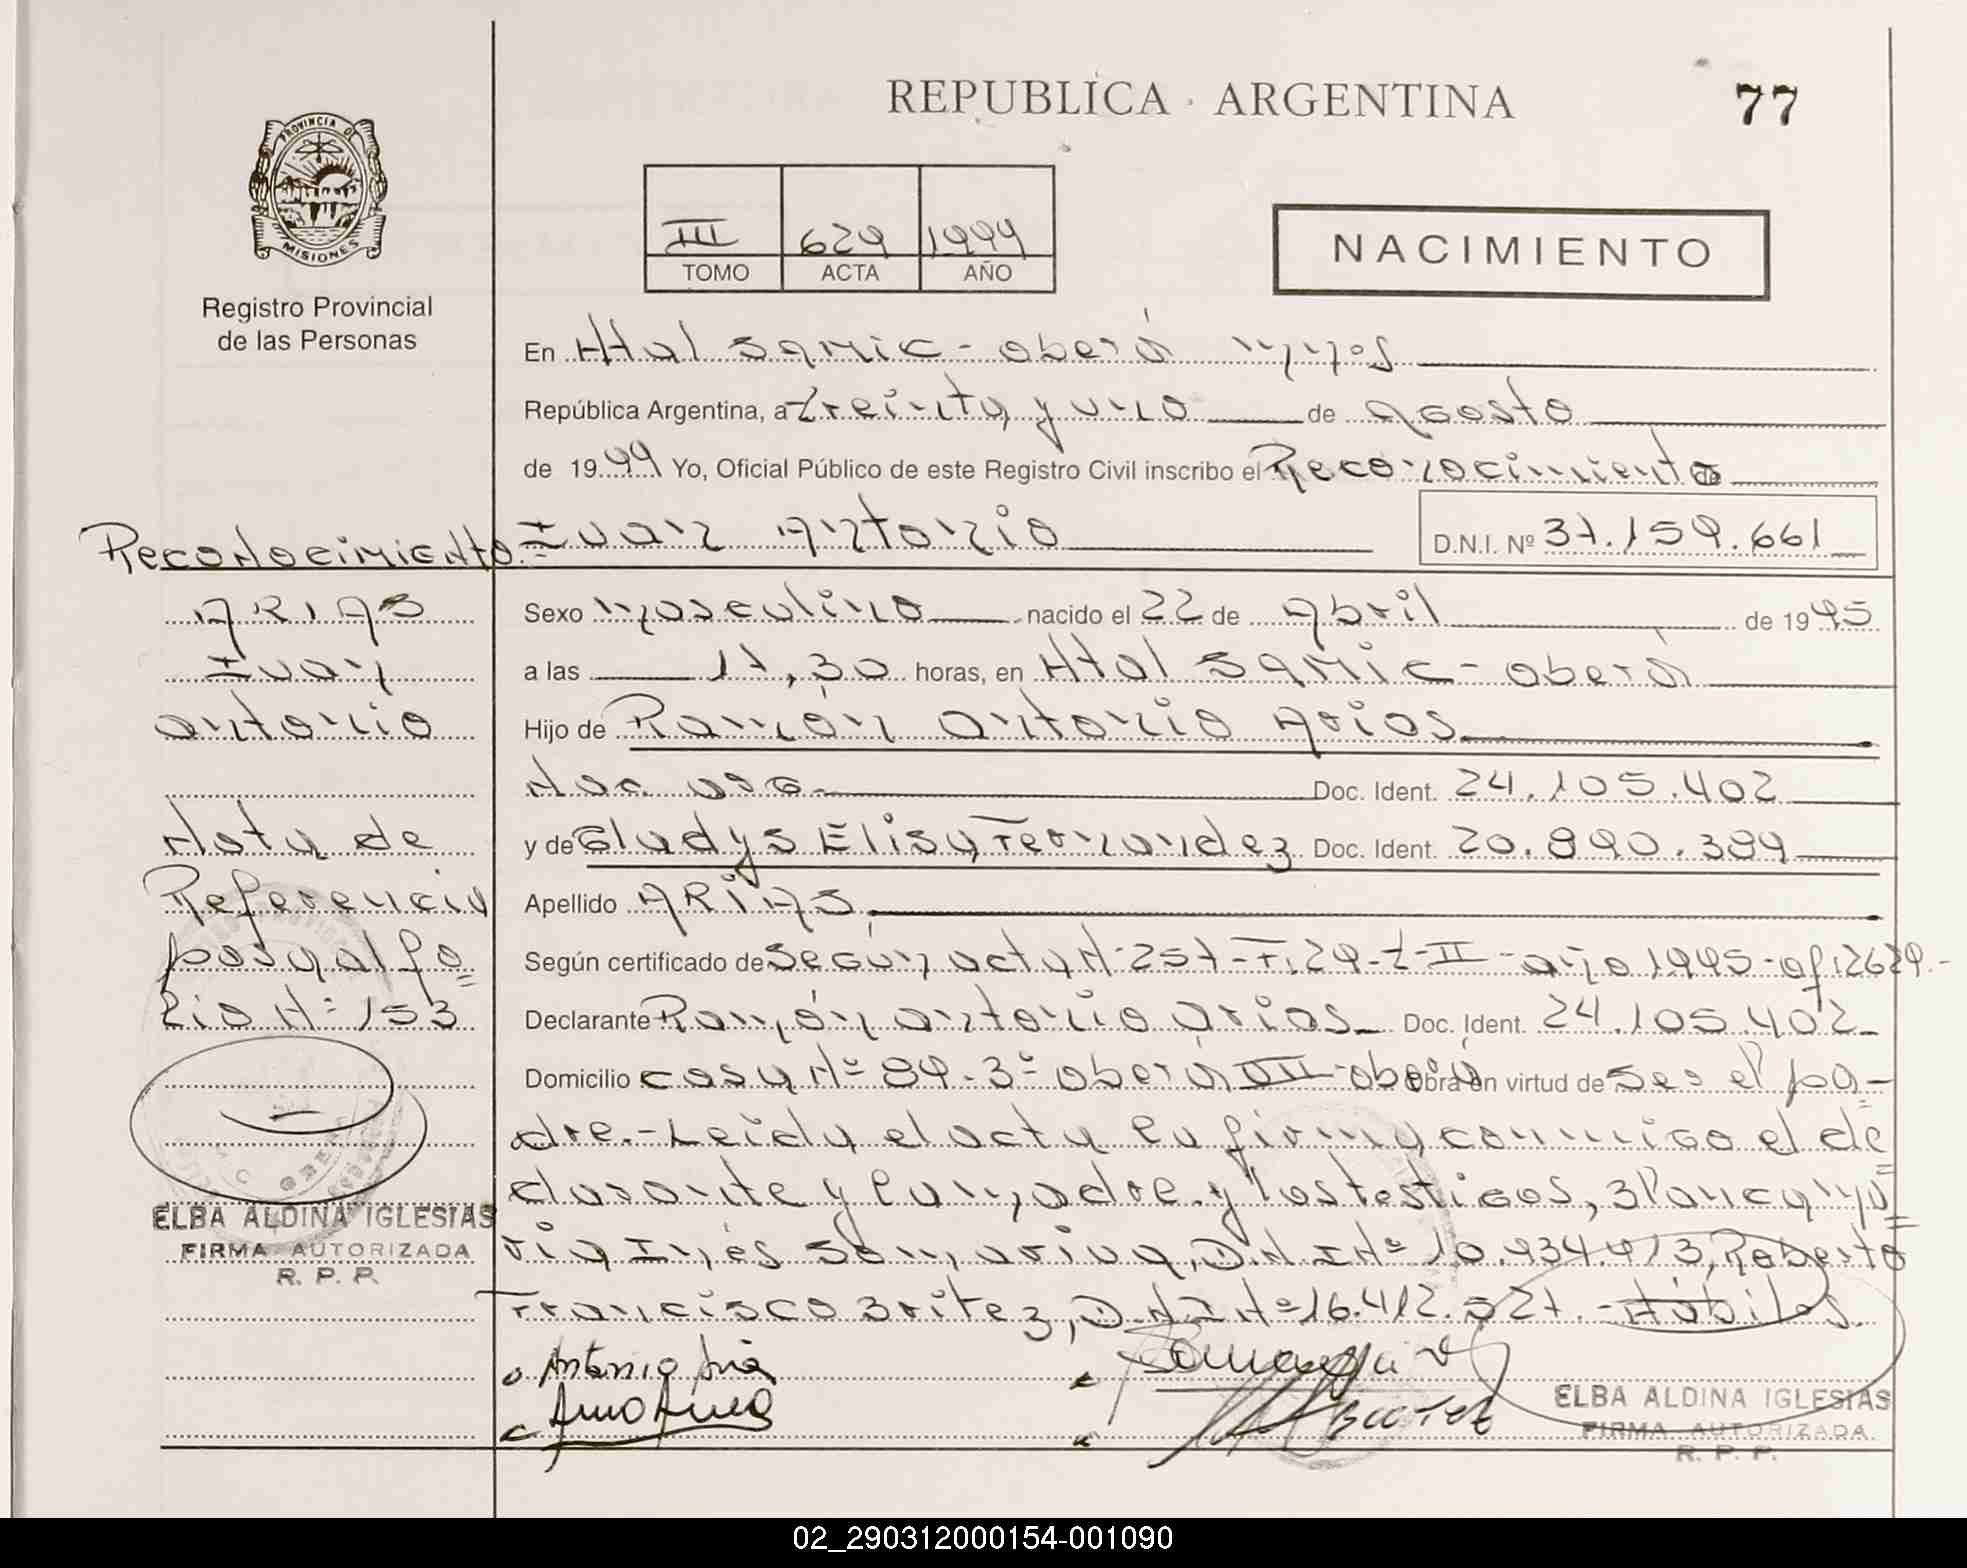 REPUBLICA ARGENTINA
77
PROVINCIA DE
MISIONES
Registro Provincial
de las Personas
III 629 1999
TOMO ACTA AÑO
NACIMIENTO
En Htal SAMIC - Oberá Mnes
República Argentina, a treinta y uno de Agosto
de 1999 Yo, Oficial Público de este Registro Civil inscribo el Reconocimiento de
Ivan Antonio
D.N.I. Nº 37.159.661
Sexo masculino nacido el 22 de Abril de 1995
a las 17,30 horas, en Htal SAMIC - Oberá
Hijo de Ramón Antonio Arias
Doc. Ident. 24.105.402
y de Gladys Elisa Fernandez Doc. Ident. 20.890.389
Apellido ARIAS
Según certificado de Según acta N° 257-F. 29-t-II-año 1995-of. 2629.-
Declarante Ramón Antonio Arias Doc. Ident. 24.105.402
Domicilio casa Nº 89-3º Oberá VII-Oberá Obra en virtud de Ser el pa=
dre.- Leida el acta la firma conmigo el de=
clarante y la madre y los testigos, Blanca Ma=
ria Inés Samaniva, D.N.I Nº 10.934.913, Roberto
Francisco Britez, D.N.I Nº 16.412.527.- Hábiles.
Reconocimiento:
ARIAS
Ivan
Antonio
Nota de
Referencia
pasa al fo=
lio Nº 153
ELBA ALDINA IGLESIAS
FIRMA AUTORIZADA
R. P. P.
ELBA ALDINA IGLESIAS
FIRMA AUTORIZADA
R. P. P.
02_290312000154-001090